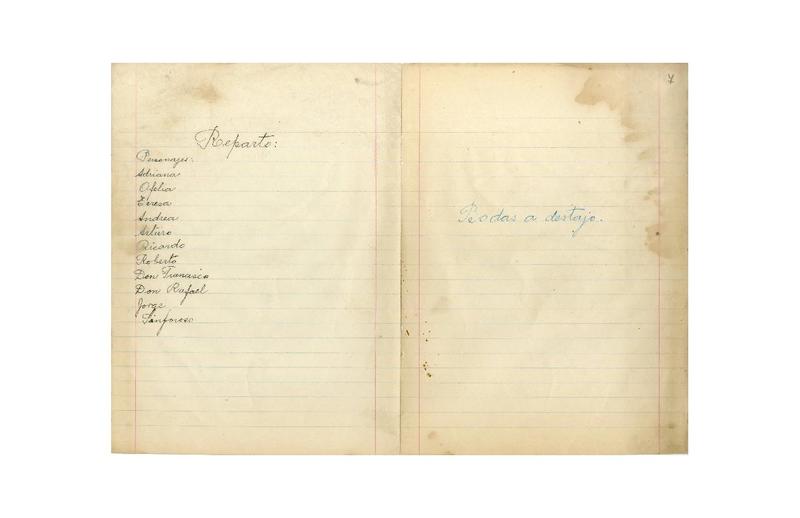 Reparto:
Personajes:
Adriana
Ofelia
Teresa
Andrea
Arturo
Ricardo
Roberto
Don Francisco
Don Rafael
Jorge
Sinforoso
Bodas a destajo.